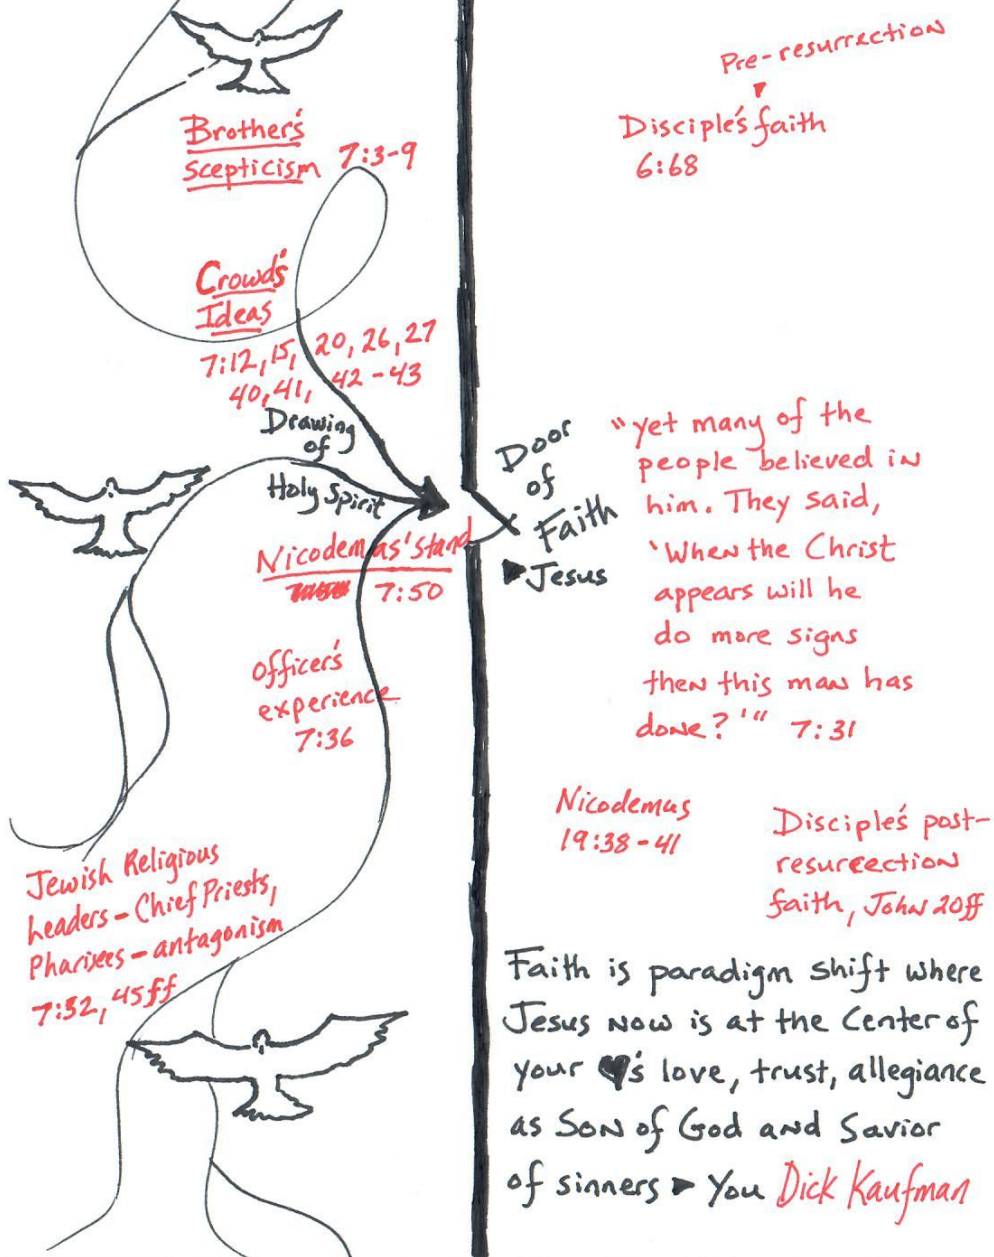 Brother's
Scepticism 7:3-9
Crowd's
Ideas
7:12, 15, 20, 26, 27
40, 41, 42-43
Drawing
of
Holy Spirit
Nicodemas' Stand
7:50
Officer's
experience
7:36
Jewish Religious
Leaders - Chief Priests,
Pharisees - antagonism
7:32, 45ff
Pre-resurrection
Disciple's faith
6:68
Door
of
Faith
▶Jesus
"yet many of the
people believed in
him. They said,
'When the Christ
appears will he
do more signs
then this man has
done?'" 7:31
Nicodemus
19:38-41
Disciple's post-
resurrection
faith, John 20ff
Faith is paradigm shift where
Jesus now is at the Center of
your ♥'s love, trust, allegiance
as Son of God and Savior
of sinners ▶ You Dick Kaufman